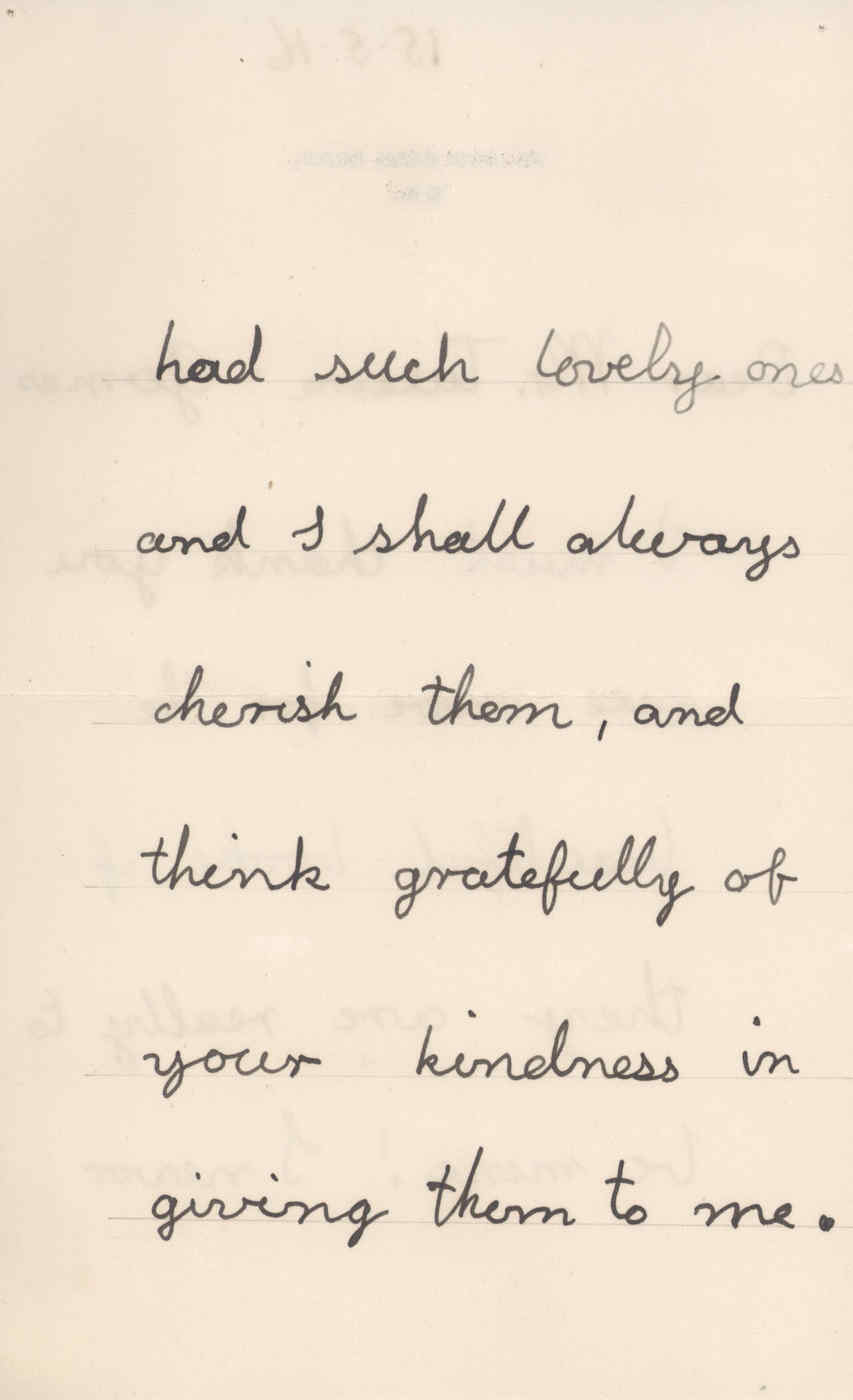 had such lovely ones
and I shall always
cherish them, and
think gratefully of
your kindness in
giving them to me.